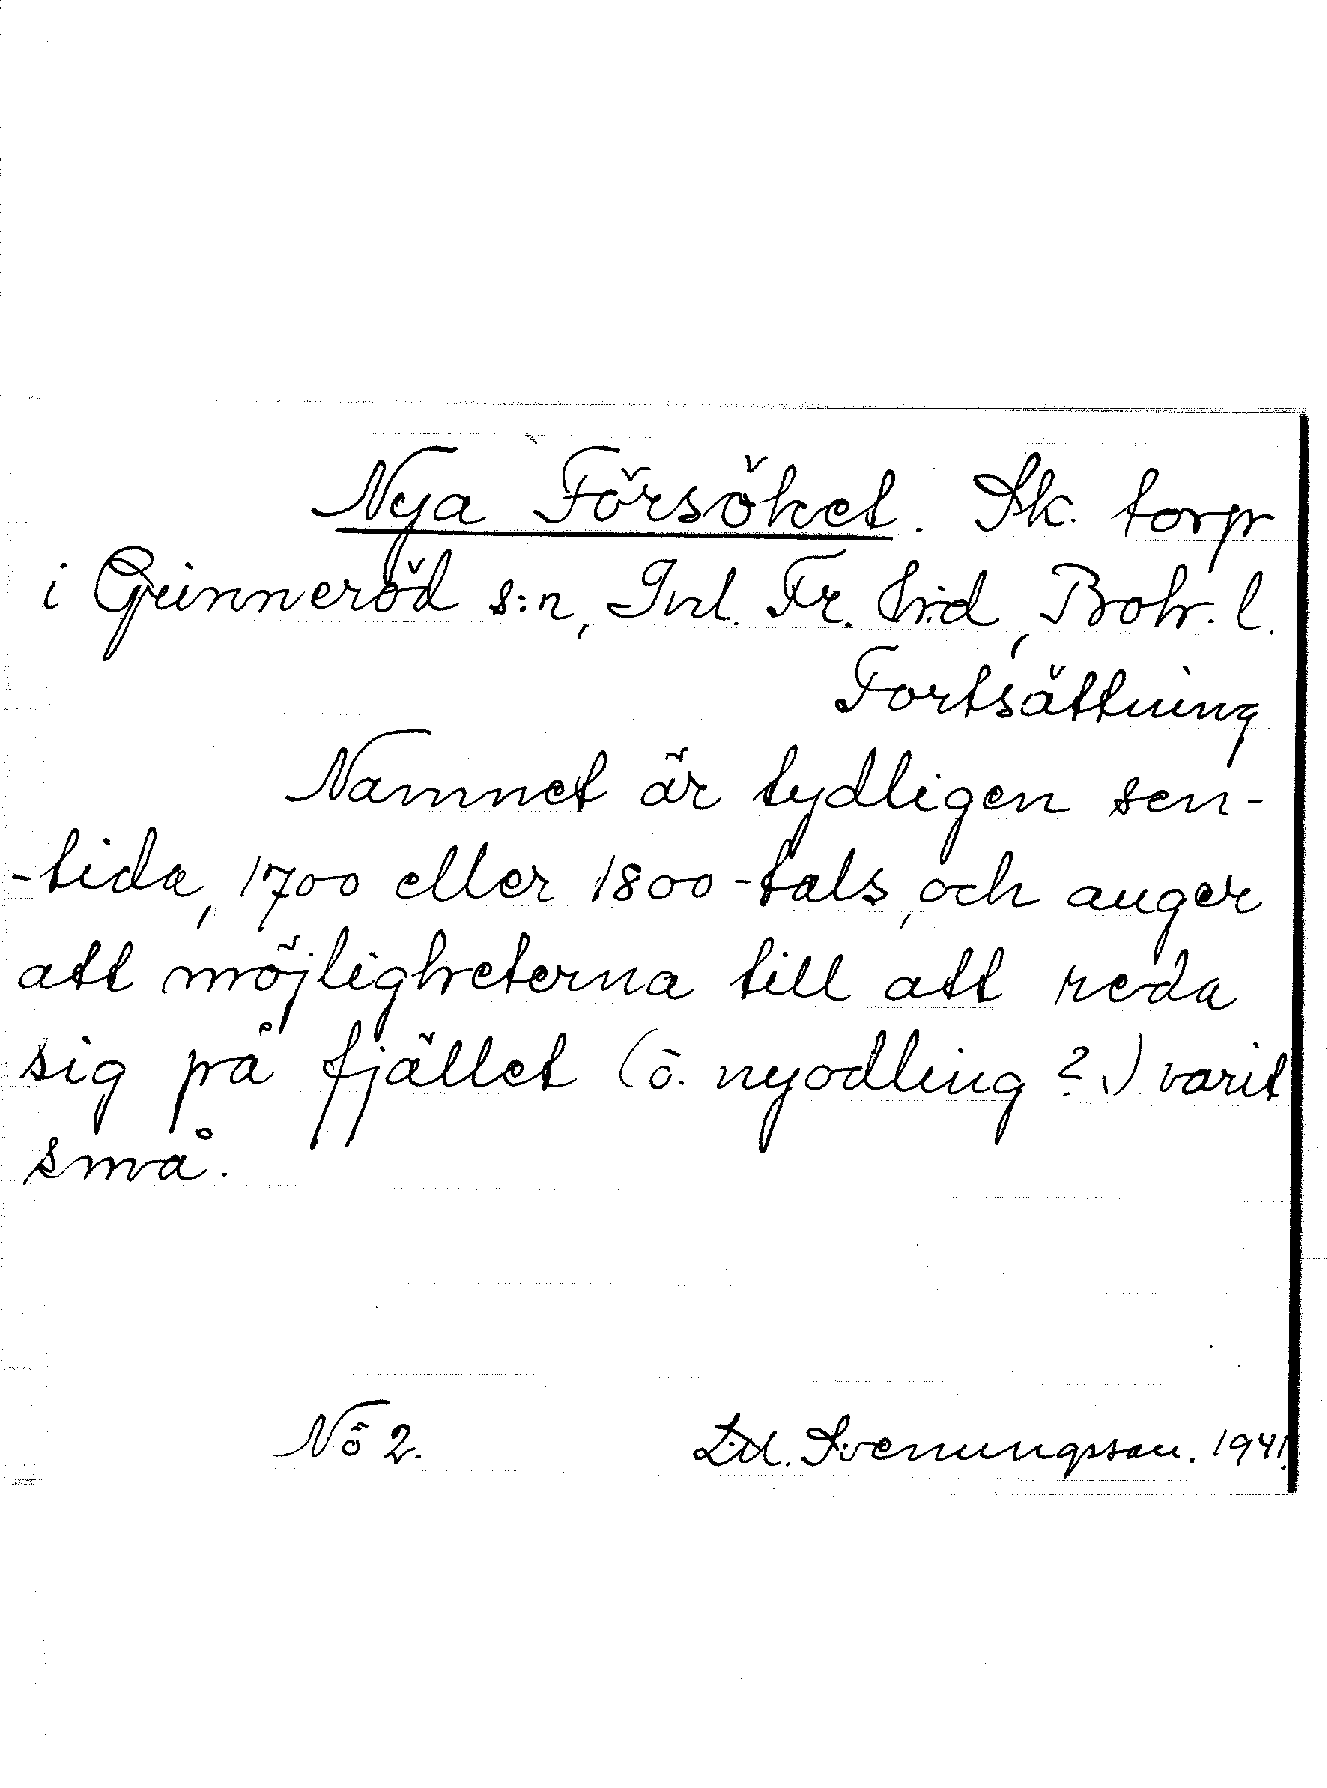 Nya Försöket. Sk. torp
i Grinneröd s:n, Inl. Fr. h:d, Boh. l.
Fortsättning
Namnet är tydligen sen-
-tida, 1700 eller 1800-tals, och anger
att möjligheterna till att reda
sig på fjället (ö. nyodling?.) varit
små.
Nö 2. Svenungsson. 1941.